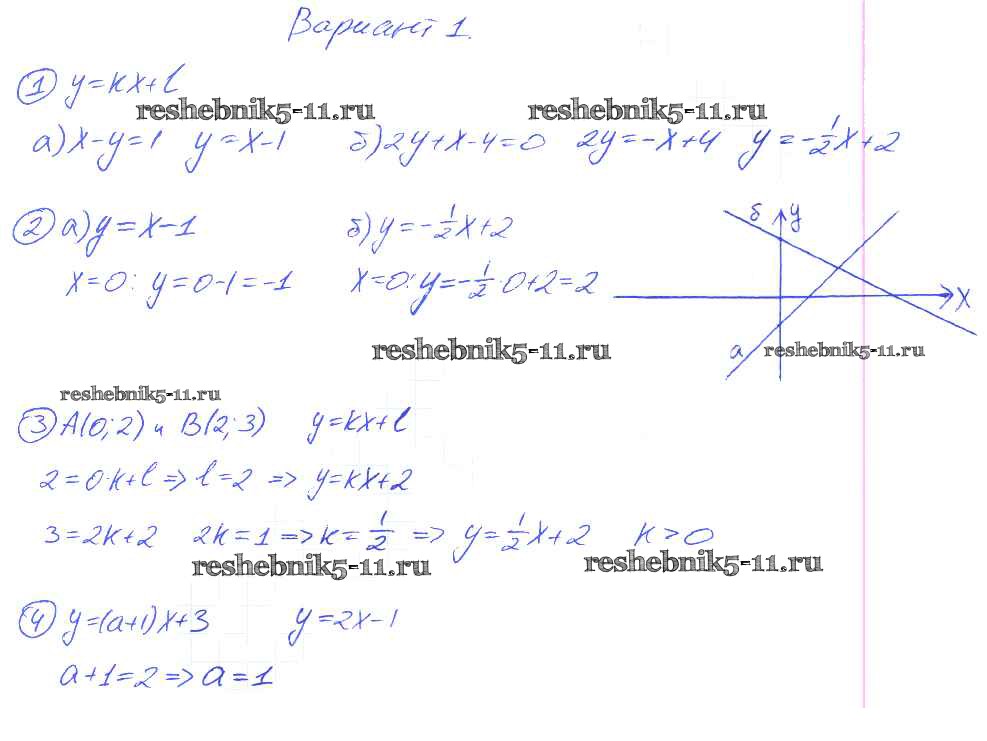 Вариант 1.
① y=kx+l
reshebnik5-11.ru reshebnik5-11.ru
а) x-y=1 y=x-1 б) 2y+x-4=0 2y=-x+4 y=-1/2x+2
② а) y=x-1 б) y=-1/2x+2
x=0: y=0-1=-1 x=0: y=-1/2·0+2=2
б y
x
а
reshebnik5-11.ru reshebnik5-11.ru
reshebnik5-11.ru
③ A(0;2) и B(2;3) y=kx+l
2=0·k+l => l=2 => y=kx+2
3=2k+2 2k=1 => k=1/2 => y=1/2x+2 k>0
reshebnik5-11.ru reshebnik5-11.ru
④ y=(a+1)x+3 y=2x-1
a+1=2 => a=1